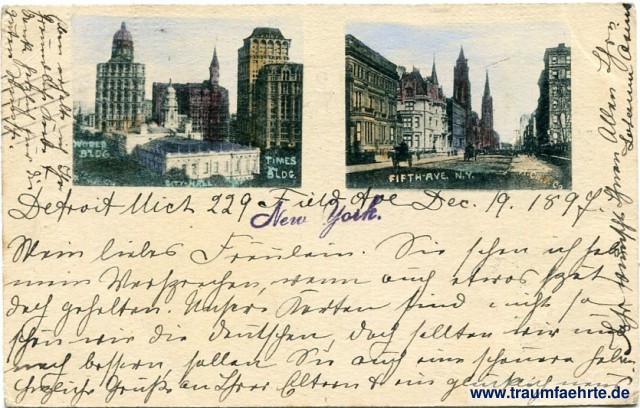 WORLD BLDG.
CITY HALL
TIMES BLDG.
FIFTH-AVE. N.Y.
Detroit Mich 229 Field Ave Dec. 19. 1897.
New York.
Mein liebes Fräulein. Sie sehen ich habe
mein Versprechen, wenn auch etwas spät
doch gehalten. Unsere Karten sind nicht so
schön wie die deutschen, doch sollten wir uns
noch bessern, sollen Sie auch eine schönere haben
Herzliche Grüße an Ihre Eltern & ein glückliches neues
Jahr wünscht Ihnen Allen Ihre
www.traumfaehrte.de